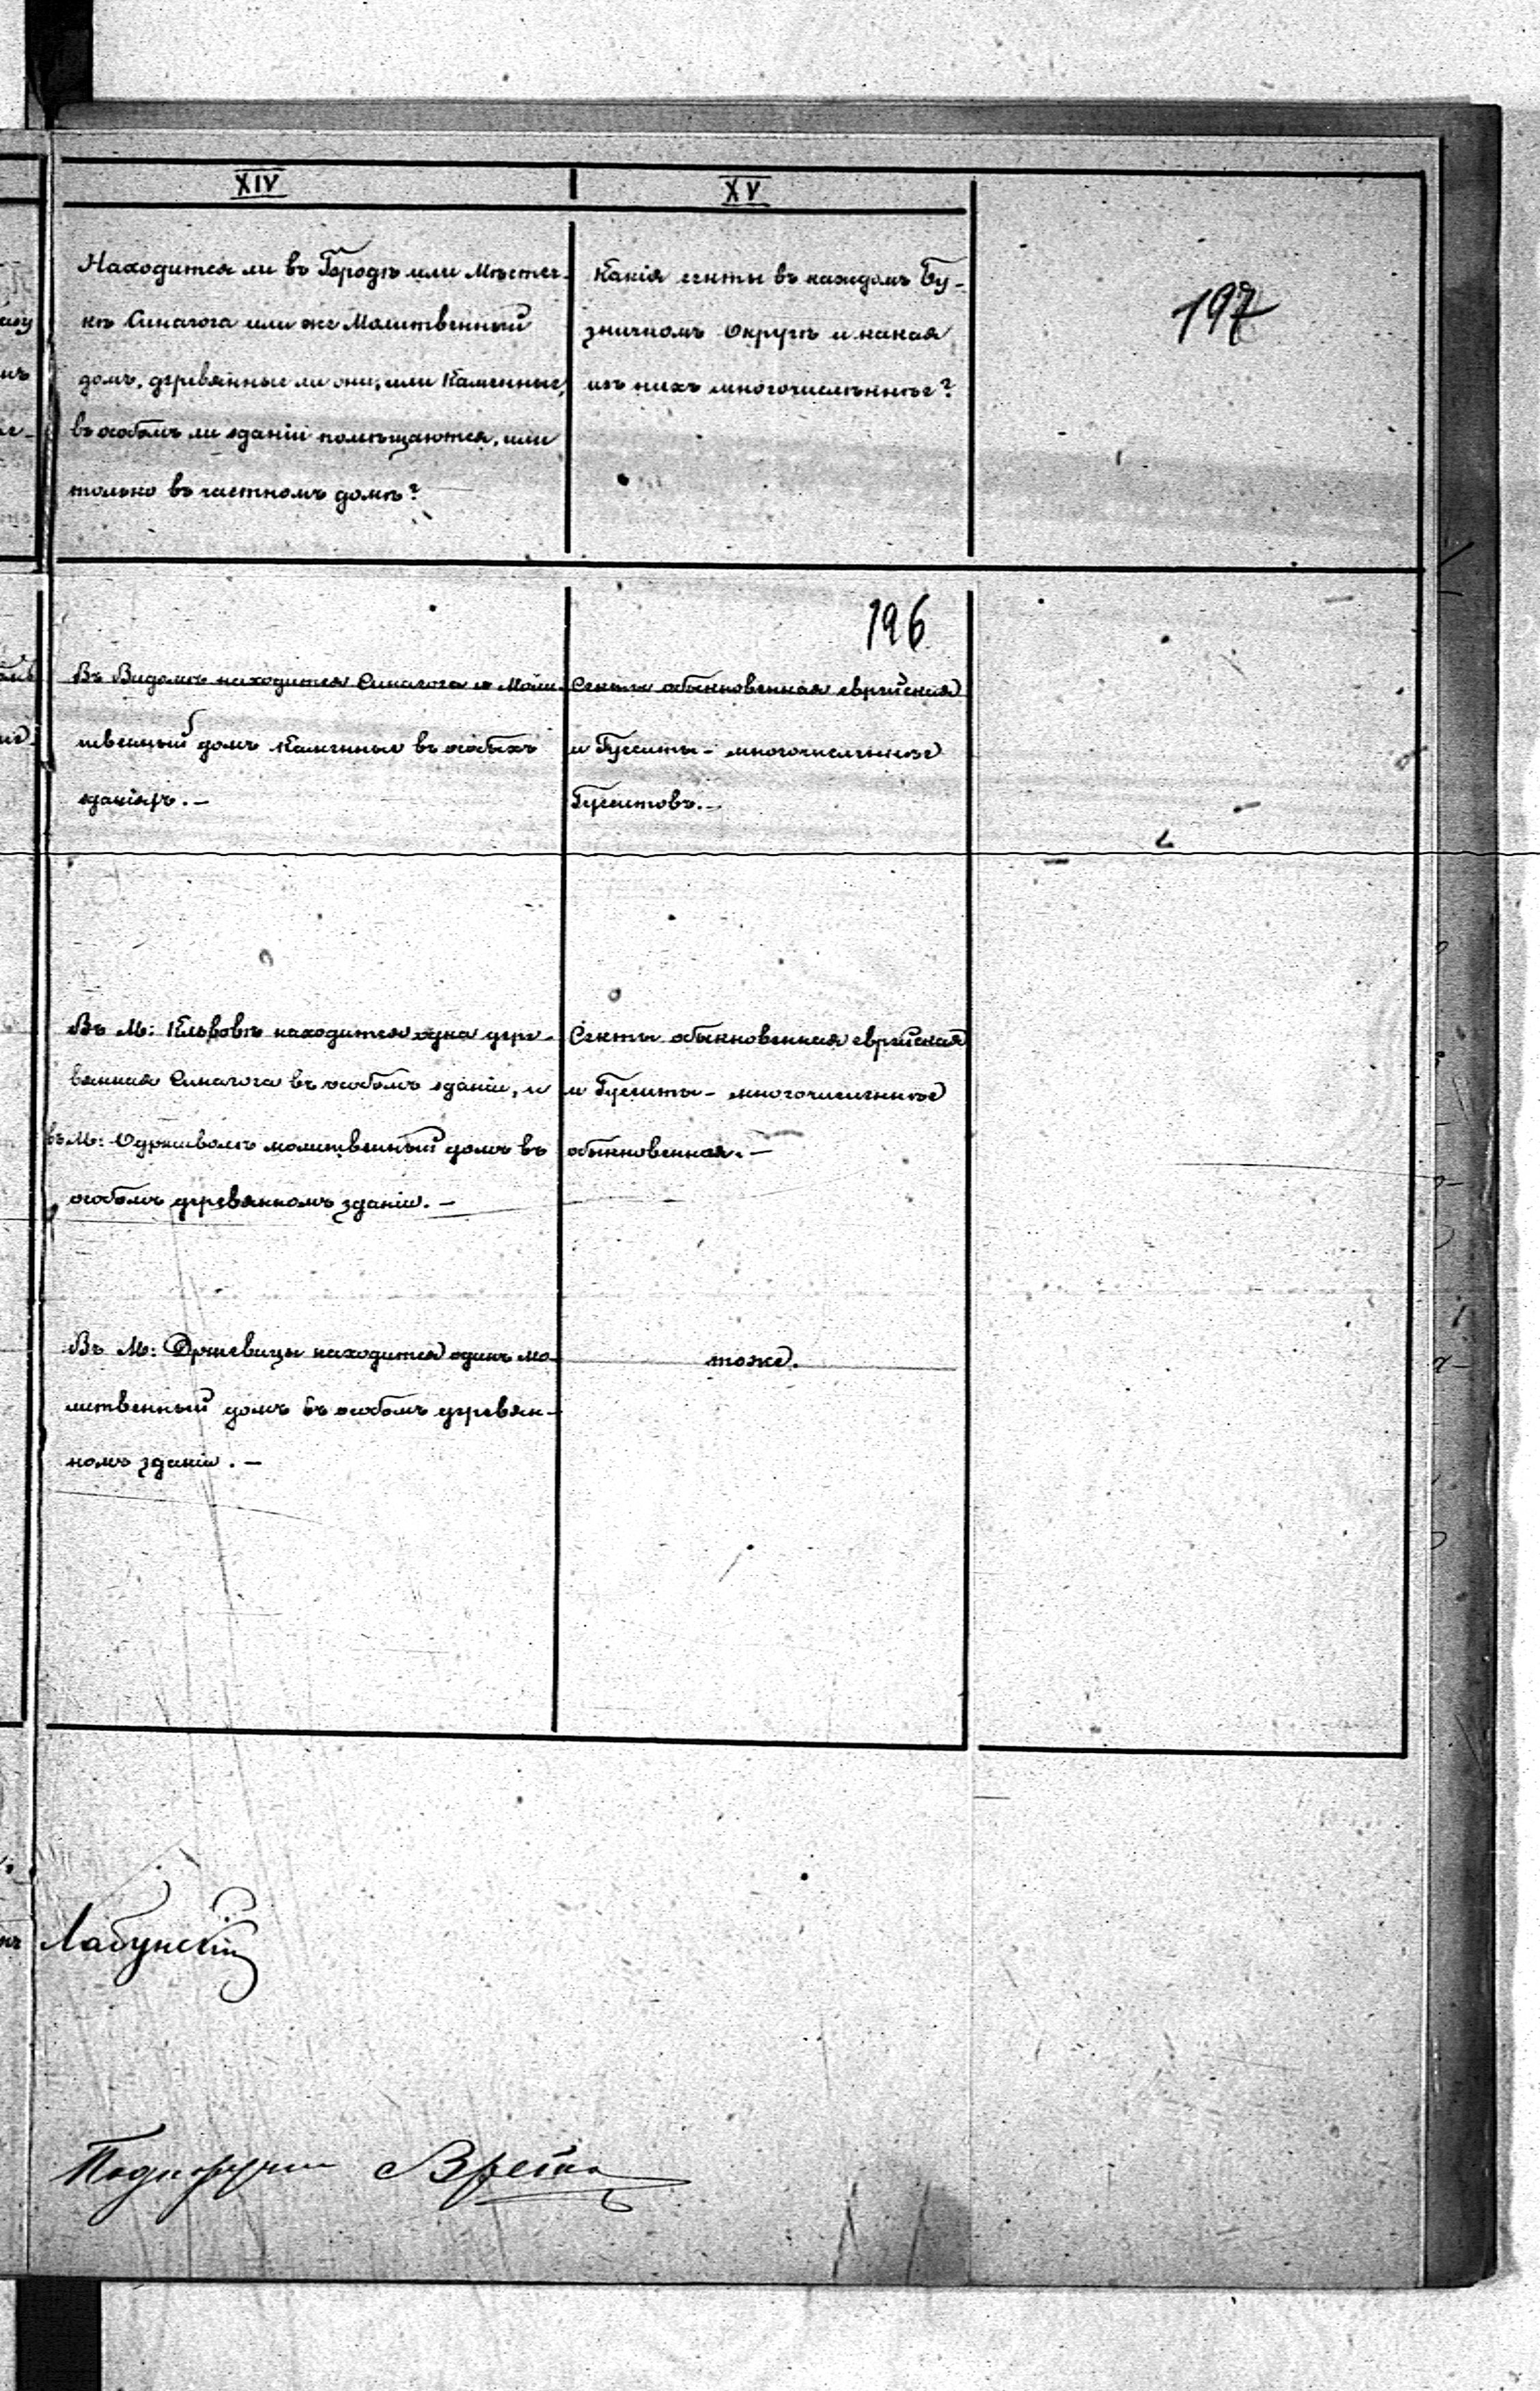 XIV
Находится ли въ Городѣ или Мѣстеч-
кѣ Синагога или же Молитвенный
домъ, деревянные ли они, или Каменные,
въ особомъ ли зданіи помѣщаются, или
только въ частномъ домѣ?
XV
Какія секты въ каждомъ Бу-
зничномъ Округѣ и какая
изъ нихъ многочисленнѣе?
197
196
Въ Видомѣ находится Синагога и Моли-
твенный домъ Каменные въ особыхъ
зданіяхъ. —
Секты обыкновенная еврейская
и Гуситы - многочисленнѣе
Гуситовъ. —
Въ М: Кльвовѣ находится одна дере-
вянная Синагога въ особомъ зданіи, и
въ М: Одрживолѣ молитвенный домъ въ
особомъ деревянномъ зданіи. —
Секты обыкновенная еврейская
и Гуситы - многочисленнѣе
обыкновенная. —
Въ М: Држевицы находится одинъ мо-
литвенный домъ въ особомъ деревян-
номъ зданіи. —
тоже.
Лабунскій